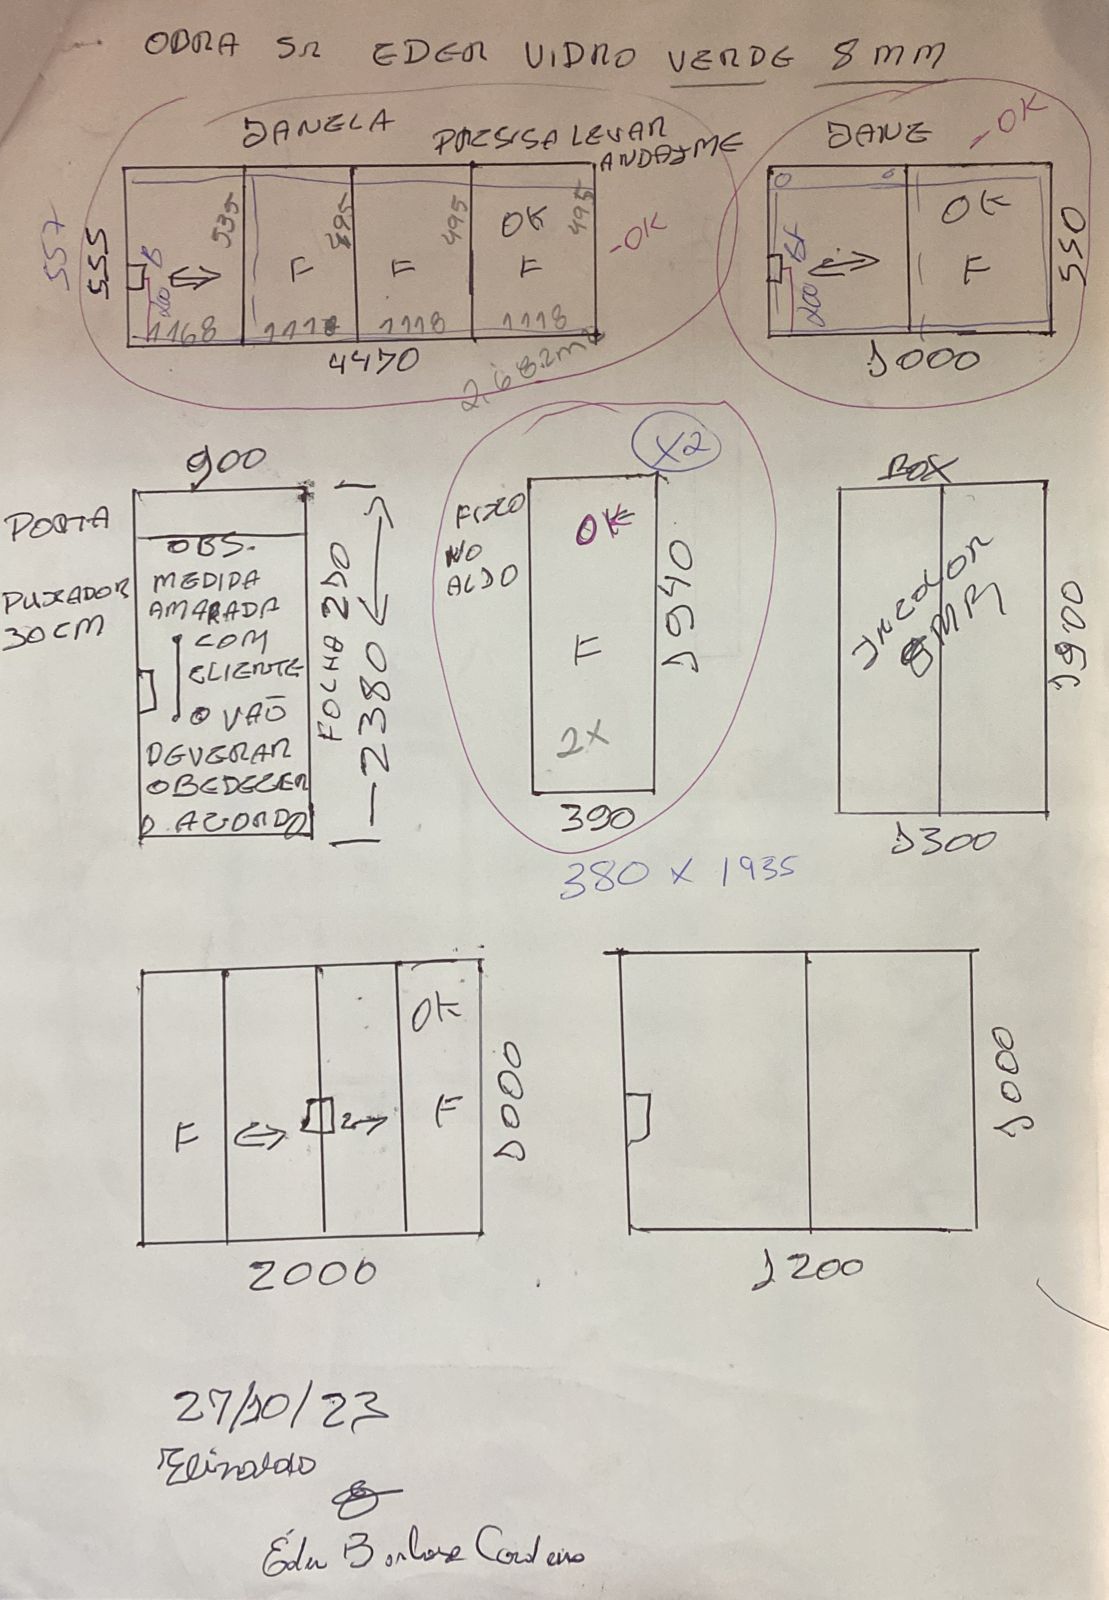 OBRA SR EDER VIDRO VERDE 8MM
JANELA
PRESISA LEVAR
ANDAYME
JANE
-OK
557
555
535
495
495
495
OK
-OK
F
F
F
200
1168
1118
1118
1118
4470
2,682m²
OK
F
200
550
1000
900
PORTA
PUXADOR
30CM
OBS.
MEDIDA
AMARADA
COM
CLIENTE
O VAO
DEVERAR
OBEDECER
O ACORDO
FOLHA 210
2380
X2
FIXO
NO
ALDO
OK
F
2X
1940
390
380 X 1935
BOX
INCOLOR
8MM
1900
1300
OK
F
F
1000
2000
1000
1200
27/10/23
Elinaldo
Éder Barbosa Cordeiro